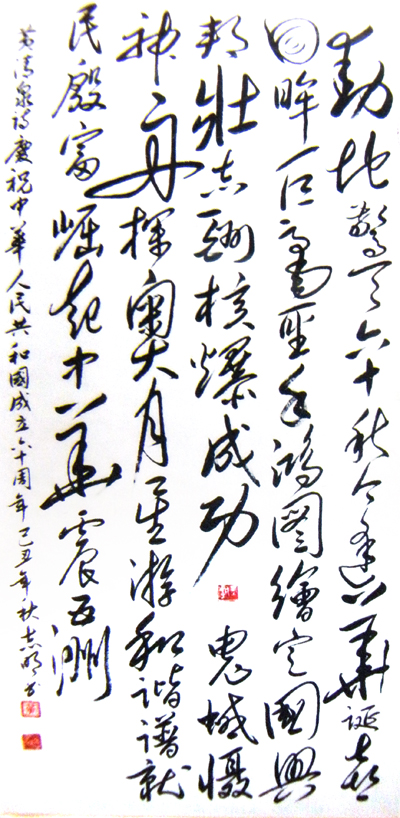 動地驚天六十秋今逢華誕喜
回眸聖手鴻圖繪定國興
邦壯志酬核爆成功鬼蜮懾
神舟探奧月星游和諧譜就
民殷富崛起中華震五洲
黄清泉詩慶祝中華人民共和國成立六十周年己丑年秋志明书